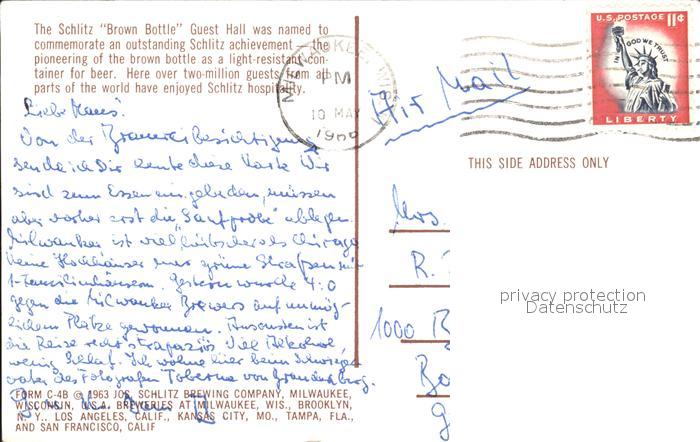 The Schlitz "Brown Bottle" Guest Hall was named to
commemorate an outstanding Schlitz achievement — the
pioneering of the brown bottle as a light-resistant con-
tainer for beer. Here over two-million guests from all
parts of the world have enjoyed Schlitz hospitality.
PM
10 MAY
U.S. POSTAGE 11¢
IN GOD WE TRUST
LIBERTY
Air Mail
THIS SIDE ADDRESS ONLY
Von der Brauerei Besichtigung
sende ich Dir heute diese Karte Wir
sind zum Essen eingeladen, müssen
aber vorher erst die "Saufprobe" ablegen.
Milwaukee ist viel hübscher als Chicago
keine Hochhäuser nur grüne Straßen mit
1-Familienhäusern. Gestern wurde 4:0
gegen die Milwaukee Brewers auf unmög-
lichem Platze gewonnen. Ansonsten ist
die Reise recht strapaziös Viel Alkohol,
wenig Schlaf. Ich wohne hier beim Schwieger-
vater des Fotografen Toberna von Brandenburg.
Mrs.
R.
1000 R
Bo
privacy protection
Datenschutz
FORM C-4B © 1963 JOS. SCHLITZ BREWING COMPANY, MILWAUKEE,
WISCONSIN, U.S.A. BREWERIES AT MILWAUKEE, WIS., BROOKLYN,
N. Y., LOS ANGELES, CALIF., KANSAS CITY, MO., TAMPA, FLA.,
AND SAN FRANCISCO, CALIF